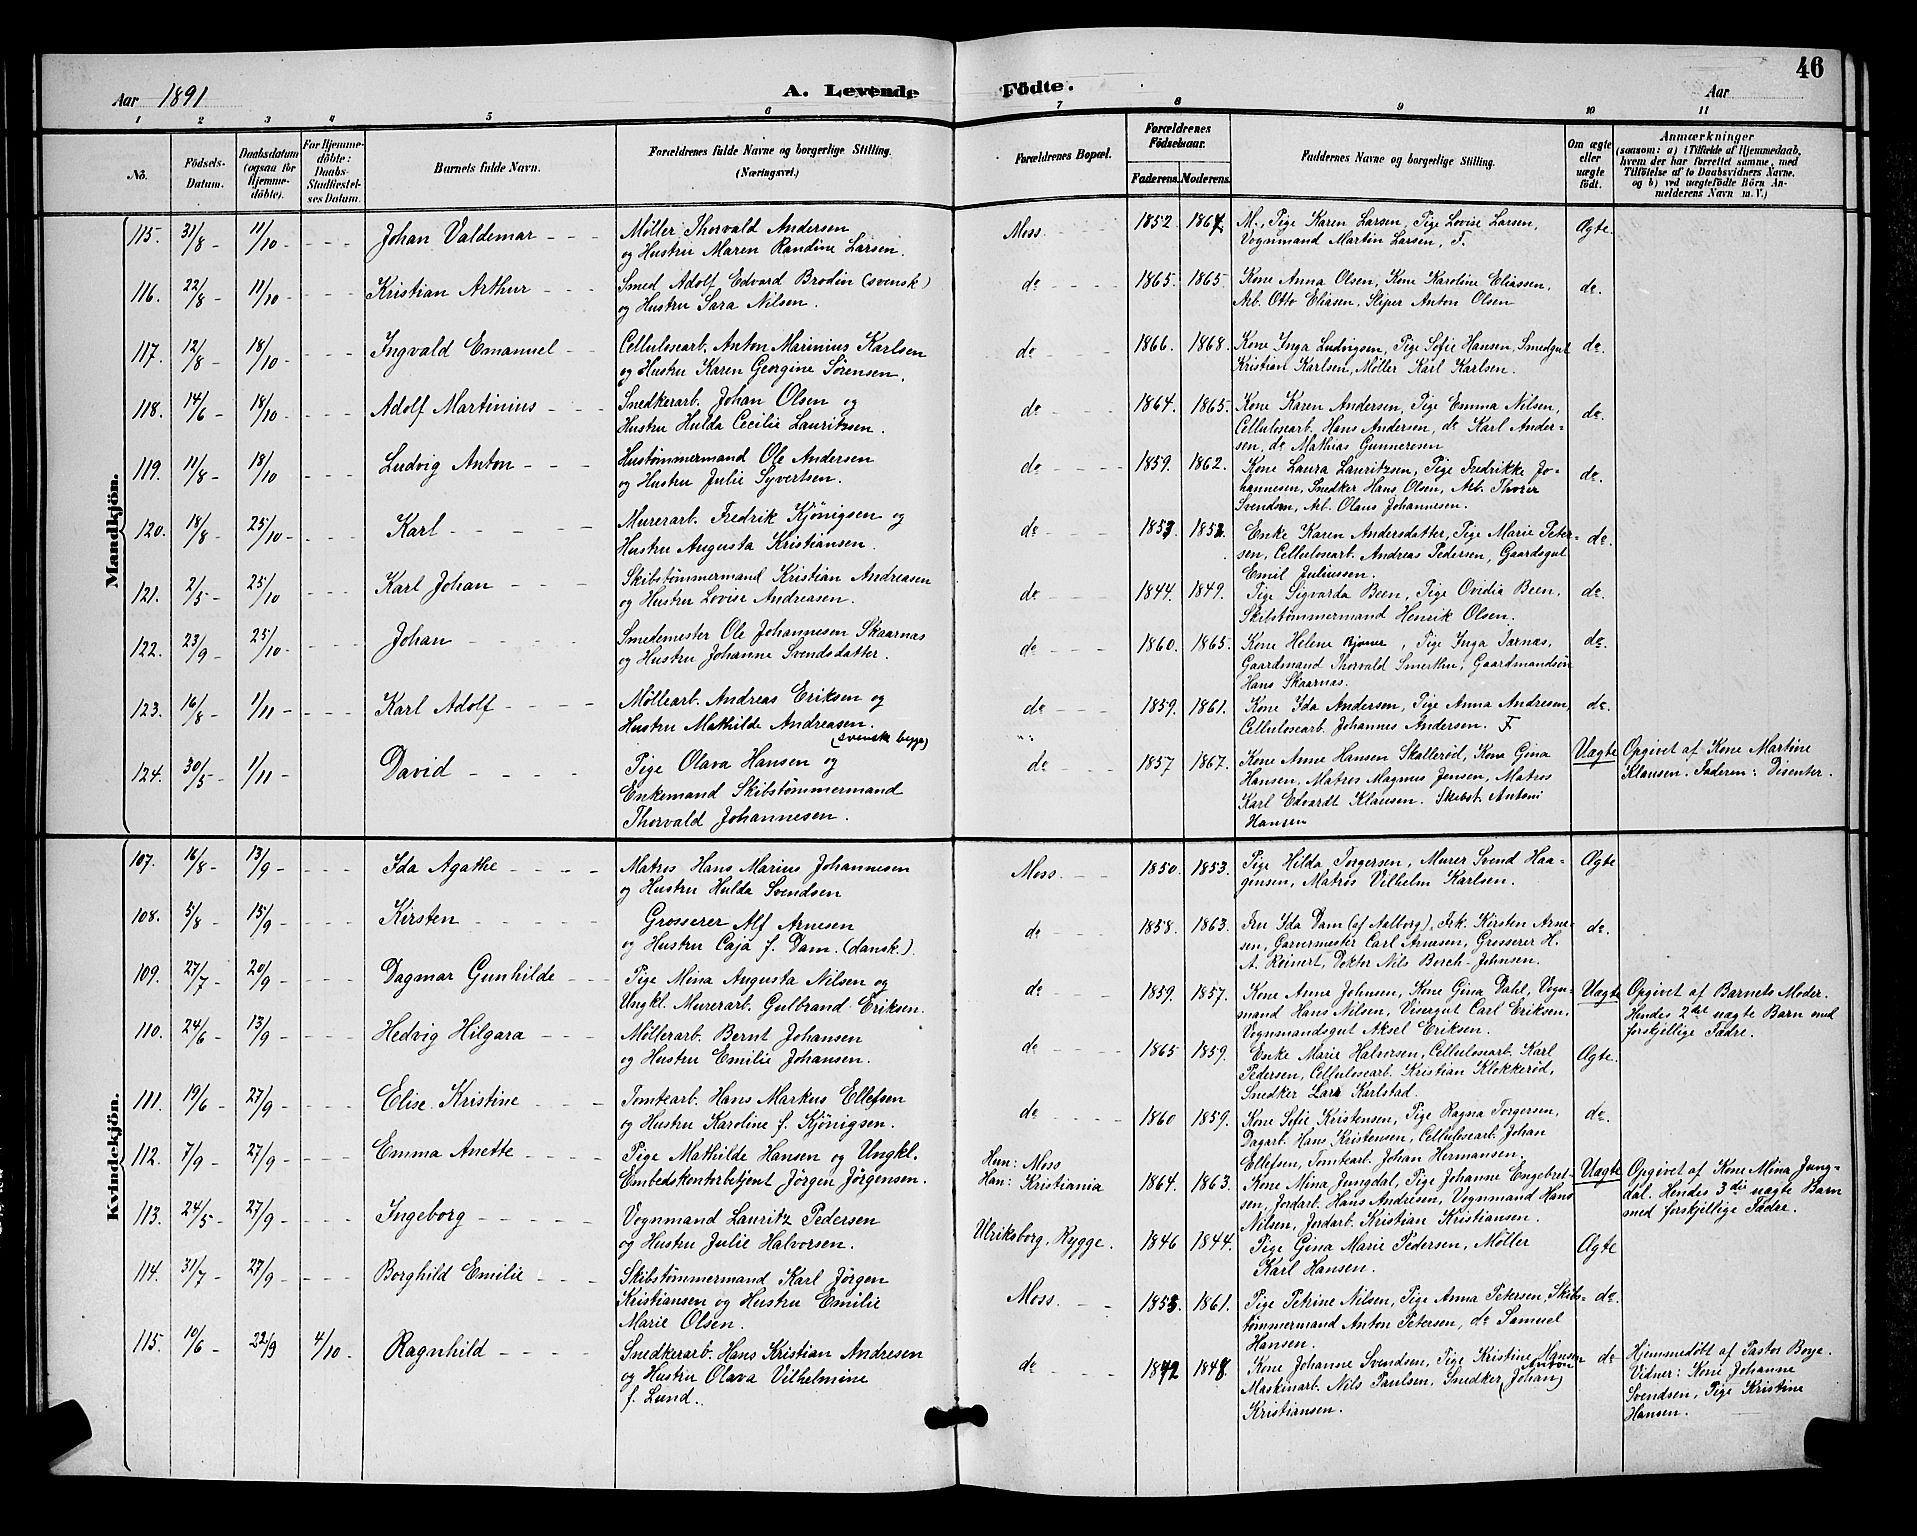 46
Aar 1891 A. Levende Födte. Aar
1 2 3 4 5 6 7 8 9 10 11
No. Födsels-Datum. Daabsdatum (ogsaa for Hjemmedöbte). For Hjemmedöbte: Daabs-Stadfæstelses Datum. Barnets fulde Navn. Forældrenes fulde Navne og borgerlige Stilling. (Næringsvei.) Forældrenes Bopæl. Forældrenes Födselsaar. Faderens. Moderens. Faddernes Navne og borgerlige Stilling. Om ægte eller uægte födt. Anmærkninger (saasom: a) i Tilfælde af Hjemmedaab, hvem der har forrettet samme, med Tilföielse af to Daabsvidners Navne, og b) ved uægtefödte Börn Anmelderens Navn m. V.)
Mandkjön.
115. 31/8 - 11/10 - - - - Johan Valdemar - - Møller Thorvald Andersen Moss. 1852. 1867. M., Pige Karen Larsen, Pige Lovise Larsen, Ægte.
og Hustru Maren Randine Larsen. Vognmand Martin Larsen, F.
116. 22/8 - 11/10 - - - - Kristian Arthur - - - Smed Adolf Edvard Brodin (svensk) do 1865. 1865. Kone Anna Olsen, Kone Karoline Eliassen, do.
og Hustru Sara Nilsen. Arb. Otto Eliasen, Sliper Anton Olsen
117. 12/8 - 18/10 - - - - Ingvald Emanuel - - Cellulosearb. Anton Marinius Karlsen do 1866. 1868. Kone Inga Ludvigsen, Pige Sofie Hansen, Smedgut do.
og Hustru Karen Georgine Sørensen. Kristian Karlsen, Møller Karl Karlsen.
118. 14/6 - 18/10 - - - - Adolf Martinius - - - Snedkerarb. Johan Olsen og do 1864. 1865. Kone Karen Andersen, Pige Emma Nilsen, do.
Hustru Hulda Cecilie Lauritzsen. Cellulosearb. Hans Andersen, do Karl Ander-
sen, do Mathias Gunnersen
119. 11/8 - 18/10 - - - Ludvig Anton - - - Hustømmermand Ole Andersen do 1859. 1862. Kone Laura Lauritzsen, Pige Fredrikke Jo- do.
og Hustru Julie Syvertsen. hannesen, Snedker Hans Olsen, Arb. Thorer
Svendsen, Arb. Olaus Johannesen.
120. 18/8 - 25/10 - - - - Karl - - - - Murerarb. Fredrik Kjönigsen og do 1853. Enke Karen Andersdatter, Pige Marie Peter- do.
Hustru Augusta Kristiansen. sen, Cellulosearb. Andreas Pedersen, Gaardsgut
Emil Juliussen.
121. 2/5 - 25/10 - - - Karl Johan - - - Skibstømmermand Kristian Andreasen do 1844. 1849. Pige Sigvarda Been, Pige Ovidia Been, do.
og Hustru Lovise Andreasen. Skibstømmermand Henrik Olsen.
122. 23/9 - 25/10 - - - - Johan - - - - Smedemester Ole Johannesen Skaarnas do 1860. 1865. Kone Helene , Pige Inga do.
og Hustru Johanne Svendsdatter. Gaardmand Thorvald , Gaardmandsön
Hans Skaarnas.
123. 16/8 - 1/11 - - - - Karl Adolf - - - - Møllearb. Andreas Eriksen og do 1859. 1861. Kone Ida Andersen, Pige Anna Andresen, do.
Hustru Mathilde Andreasen. Cellulosearb. Johannes Andersen. F
(svensk begge)
124. 30/5 - 1/11 - David - - - - Pige Olava Hansen og do 1857 1867. Kone Anne Hansen Skallerød, Kone Gina Uægte Opgivet af Kone Martine
Enkemand Skibstømmermand Hansen, Matros Magnus Jensen, Matros Klausen. Faderen: Disenter.
Thorvald Johannesen. Karl Edvardt Klausen. Skibst. Antoni
Hansen
Kvindekjön.
107. 16/8 - 13/9 - - - - Ida Agathe - - - - Matros Hans Marius Johannesen Moss. 1850. 1853. Pige Hilda Torgersen, Murer Svend Haa- Ægte
og Hustru Hulda Svendsen gensen, Matros Vilhelm Karlsen.
108. 5/8 - 15/9 - - - - Kirsten - - - - Grosserer Alf Arnesen do 1858. 1863. Fru Ida Dam (af Aalborg), Frk. Kirsten Arne- do.
og Hustru Caja f. Dam. (dansk.). sen, Garvermester Carl Arnesen, Grosserer H.
A. Reinert, Doktor Nils Borch-Johnsen.
109. 27/7 - 20/9 - - - - Dagmar Gunhilde - - Pige Mina Augusta Nilsen og do 1859. 1857. Kone Anna Johnsen, Kone Gina Dahl, Vogn- Uægte Opgivet af Barnets Moder.
Ungkl. Murerarb. Gulbrand Eriksen. mand Hans Nilsen, Visergut Carl Eriksen, Hendes 2det uægte Barn med
Vognmandsgut Aksel Eriksen. forskjellige Fædre.
110. 24/6 - 13/9 - - - - Hedvig Hilgara - - - Møllerarb. Bernt Johansen do 1865 1859. Enke Marie Halvorsen, Cellulosearb. Karl Ægte.
og Hustru Emilie Johansen. Pedersen, Cellulosearb. Kristian Klokkerød,
Snedker Lars Karlstad.
111. 19/6 - 27/9 - - - - Elise Kristine - - - Tomtearb. Hans Markus Ellefsen do 1860 1859. Kone Sofie Kristensen, Pige Ragna Torgersen, do.
og Hustru Karoline f. Kjönigsen. Dagarb. Hans Kristensen, Cellulosearb. Johan
Ellefsen, Tomtearb. Johan Hermansen.
112. 7/9 - 27/9 - - - - Emma Anette - - - - Pige Mathilde Hansen og Ungkl. Hun: Moss 1864. 1863. Kone Mina Jungdal, Pige Johanne Engebret- Uægte Opgivet af Kone Mina Jung-
Embedskontorbetjent Jörgen Jörgensen. Han: Kristiania sen, Jordarb. Hans Andresen, Vognmand Hans dal. Hendes 3die uægte Barn
Nilsen, Jordarb. Kristian Kristiansen. med forskjellige Fædre.
113. 24/5 - 27/9 - - - - Ingeborg - - - - - Vognmand Lauritz Pedersen Ulriksborg, Rygge. 1846 1844. Pige Gina Marie Pedersen, Møller Ægte
og Hustru Julie Halvorsen. Karl Hansen.
114. 31/7 - 27/9 - - - - Borghild Emilie - - - Skibstømmermand Karl Jørgen Moss. 1853. 1861. Pige Petrine Nilsen, Pige Anna Petersen, Skibs- do.
Kristiansen og Hustru Emilie tømmermand Anton Petersen, do Samuel
Marie Olsen. Hansen.
115. 10/6 - 22/9 4/10 - Ragnhild - - - - Snedkerarb. Hans Kristian Andresen do 1842 1848. Kone Johanne Svendsen, Pige Kristine Hansen do Hjemmedöbt af Pastor Boye.
og Hustru Olava Vilhelmine Maskinarb. Nils Paulsen, Snedker Johan Anton Vidner: Kone Johanne
f. Lund. Kristiansen. Svendsen, Pige Kristine
Hansen.